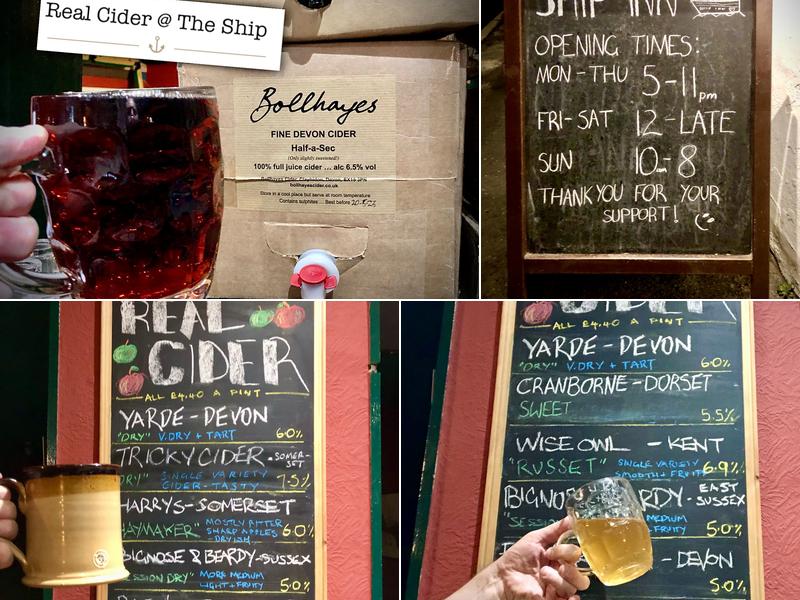 Real Cider @ The Ship
Bollhayes
FINE DEVON CIDER
Half-a-Sec
(Only slightly sweetened!)
100% full juice cider ... alc 6.5% vol
Bollhayes Cider, Clayhidon, Devon, EX15 3PN
bollhayescider.co.uk
Store in a cool place but serve at room temperature
Contains sulphites ... Best before
SHIP INN
OPENING TIMES:
MON-THU 5-11pm
FRI-SAT 12-LATE
SUN 10-8
THANK YOU FOR YOUR
SUPPORT!
REAL
CIDER
ALL £4.40 A PINT
YARDE-DEVON
"DRY" V.DRY + TART 6.0%
TRICKY CIDER - SOMER-
SET
DRY" SINGLE VARIETY 7.5%
CIDER-TASTY
HARRYS-SOMERSET
HAYMAKER" MOSTLY BITTER 6.0%
SHARP APPLES
DRYISH
BIGNOSE & BEARDY-SUSSEX
SESSION DRY" MORE MEDIUM
LIGHT+FRUITY 5.0%
CIDER
ALL £4.40 A PINT
YARDE-DEVON
"DRY" V.DRY + TART 6.0%
CRANBORNE-DORSET
SWEET 5.5%
WISE OWL - KENT
"RUSSET" SINGLE VARIETY 6.9%
SMOOTH + FRUITY
BIGNO RDY- EAST
SUSSEX
"SESSI MEDIUM
FRUITY 5.0%
- DEVON
5.0%